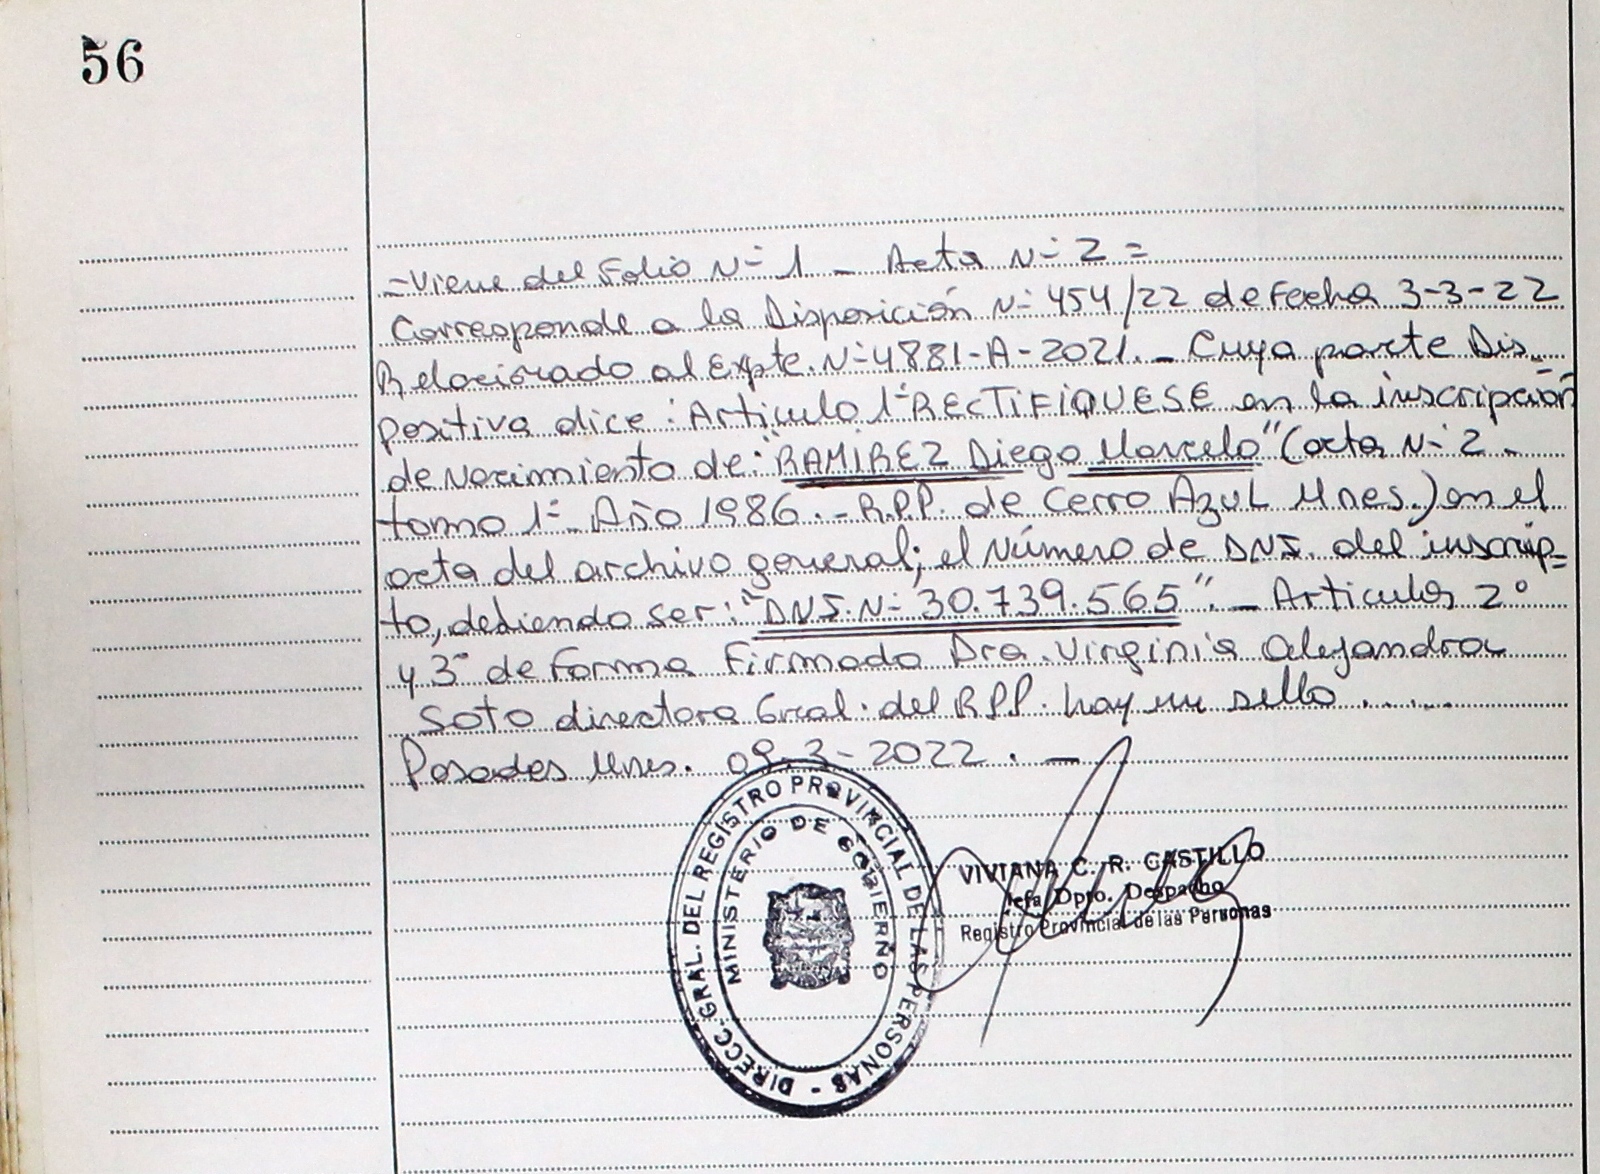 56
=Viene del Folio Nº 1 - Acta Nº 2 =
Corresponde a la Disposición Nº 454/22 de Fecha 3-3-22
Relacionado al Expte. Nº 4881-A-2021. - Cuya parte Dis-
positiva dice: Articulo 1º RECTIFIQUESE en la inscripción
de Nacimiento de: "RAMIREZ Diego Marcelo" (acta Nº 2 -
tomo 1º - Año 1986. - R.P.P. de Cerro Azul Mnes.) en el
acta del archivo general; el Número de DNI. del inscrip=
to, debiendo ser: "DNI. Nº 30.739.565". - Articulos 2º
y 3º de Forma Firmado Dra. Virginia Alejandra
Soto directora Gral. del RPP. hay un sello ......
Posadas Mnes. 09-3-2022. -
DIRECC. GRAL. DEL REGISTRO PROVINCIAL DE LAS PERSONAS -
MINISTERIO DE GOBIERNO
VIVIANA C. R. CASTILLO
Jefa Dpto. Despacho
Registro Provincial de las Personas